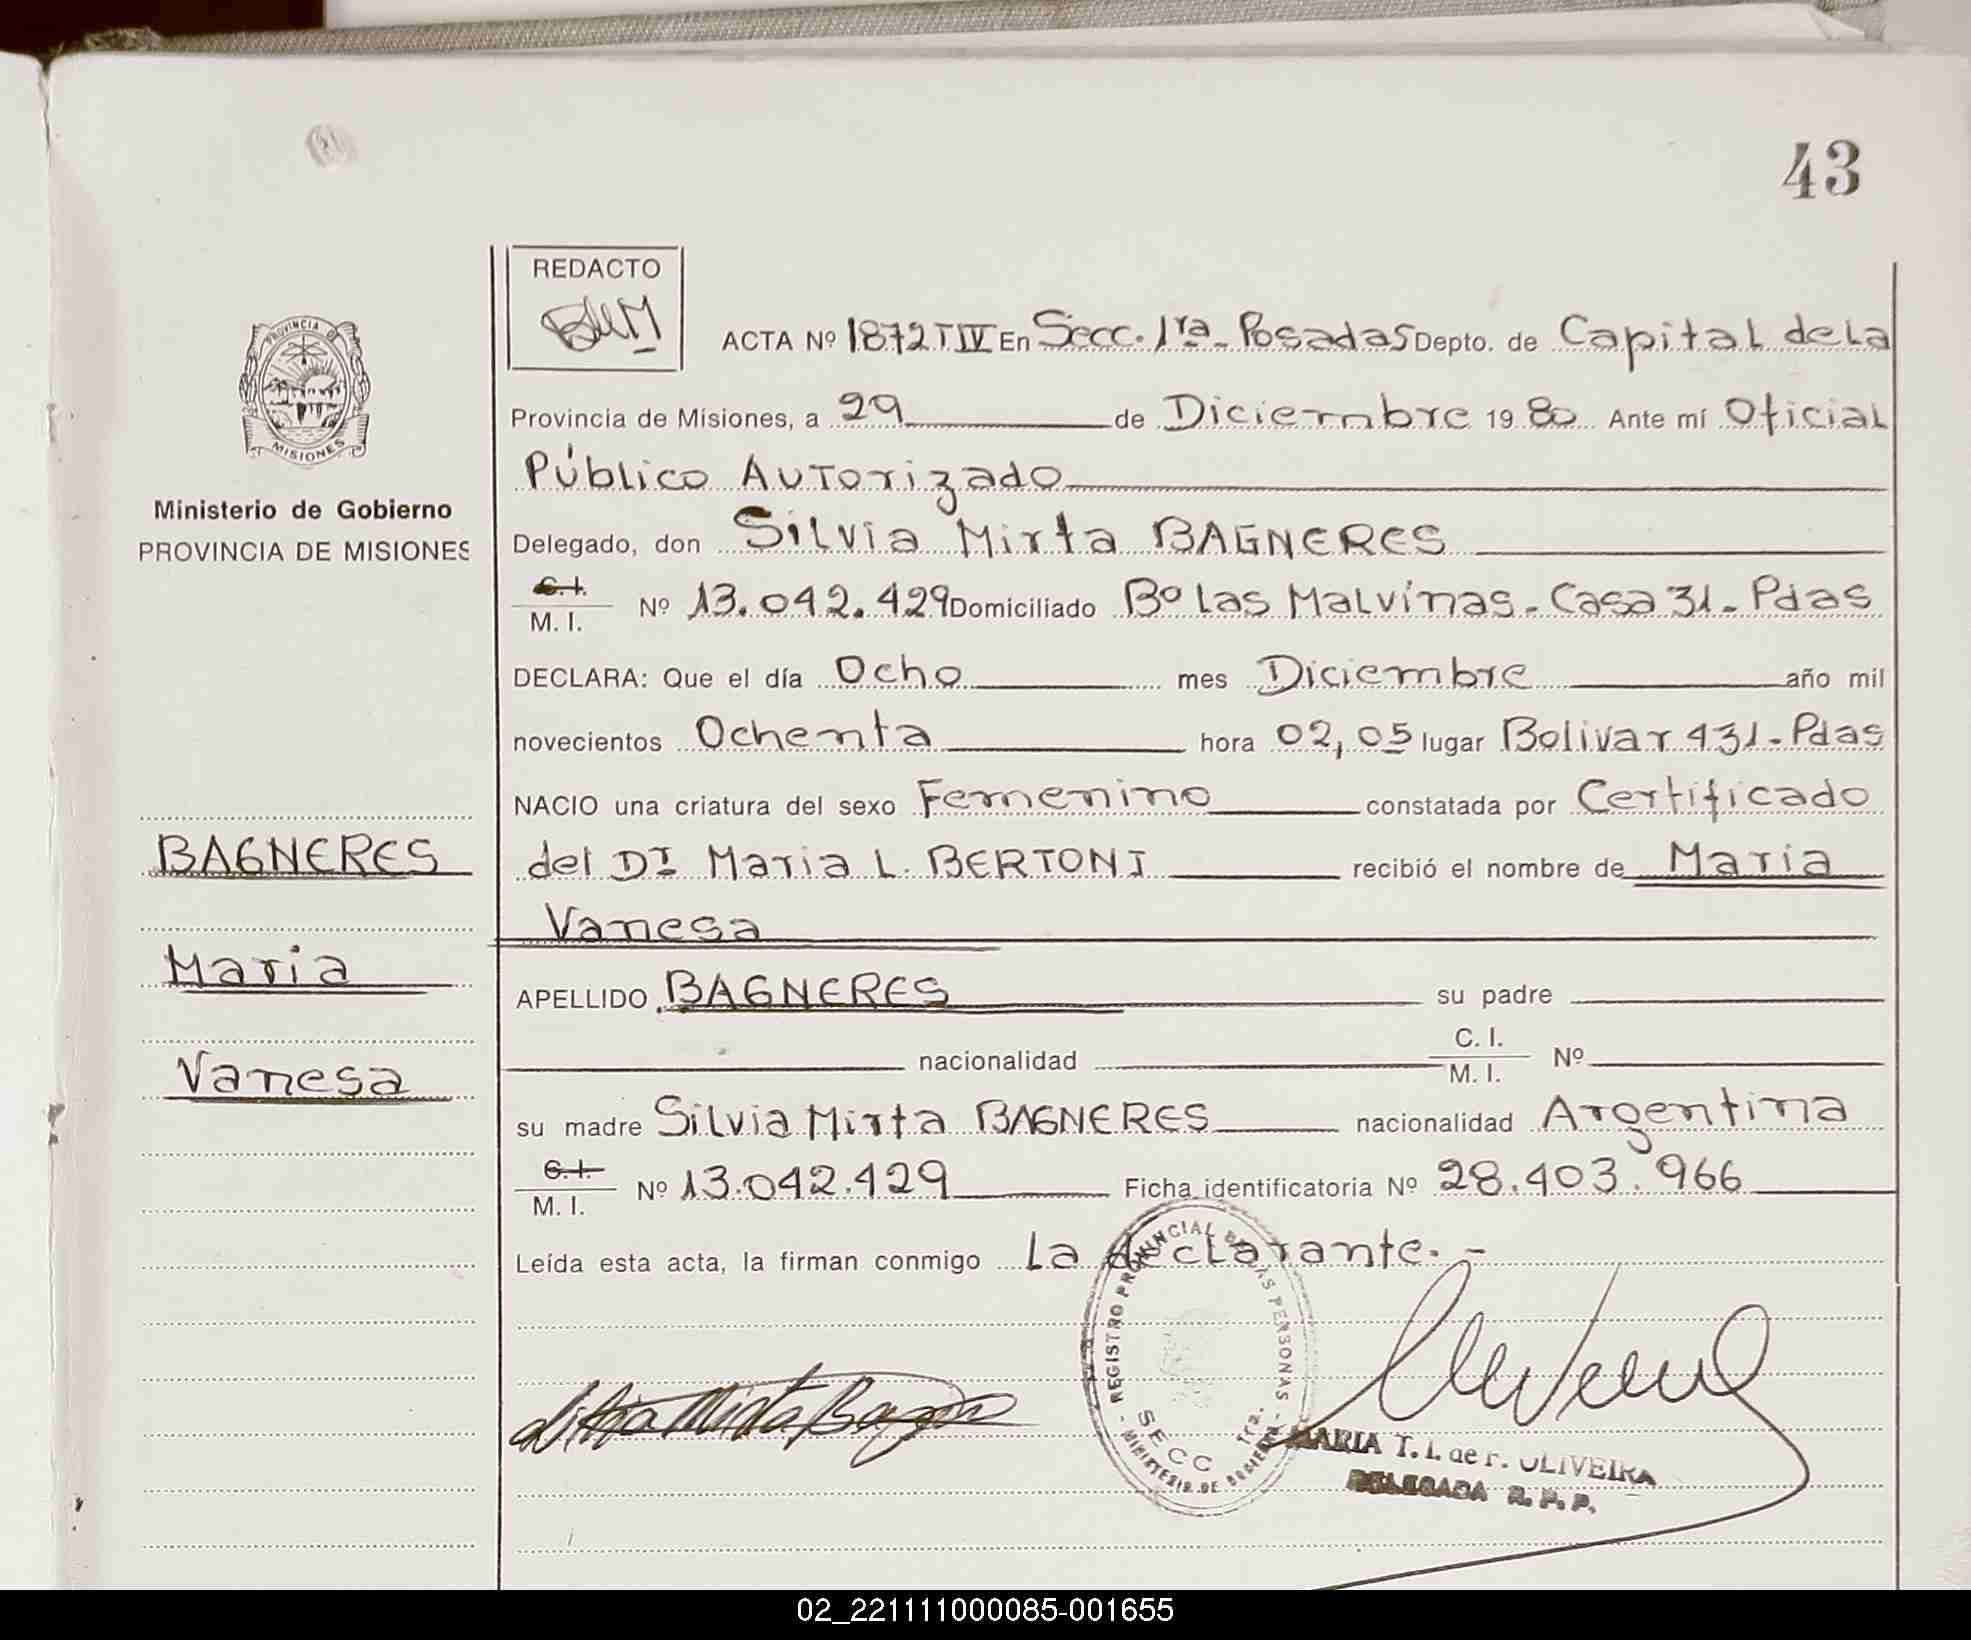 43
REDACTO
ACTA Nº 1872 T IV En Secc. 1ra - Posadas Depto. de Capital de La
Provincia de Misiones, a 29 de Diciembre 19 80 Ante mí Oficial
Público Autorizado
Delegado, don Silvia Mirta BAGNERES
C. I.
M. I. Nº 13.042.429 Domiciliado Bº Las Malvinas - Casa 31 - Pdas
DECLARA: Que el día Ocho mes Diciembre año mil
novecientos Ochenta hora 02,05 lugar Bolivar 431 - Pdas
NACIO una criatura del sexo Femenino constatada por Certificado
del Dr Maria L. BERTONI recibió el nombre de Maria
Vanesa
APELLIDO BAGNERES su padre
nacionalidad C. I. M. I. Nº
su madre Silvia Mirta BAGNERES nacionalidad Argentina
C. I.
M. I. Nº 13.042.429 Ficha identificatoria Nº 28.403.966
Leída esta acta, la firman conmigo La declarante. -
PROVINCIA DE
MISIONES
Ministerio de Gobierno
PROVINCIA DE MISIONES
BAGNERES
Maria
Vanesa
Silvia Mirta
REGISTRO PROVINCIAL DE LAS PERSONAS
SECC 1ra.
MINISTERIO DE GOBIERNO
MARIA T. I. de F. OLIVEIRA
DELEGADA R. P. P.
02_221111000085-001655